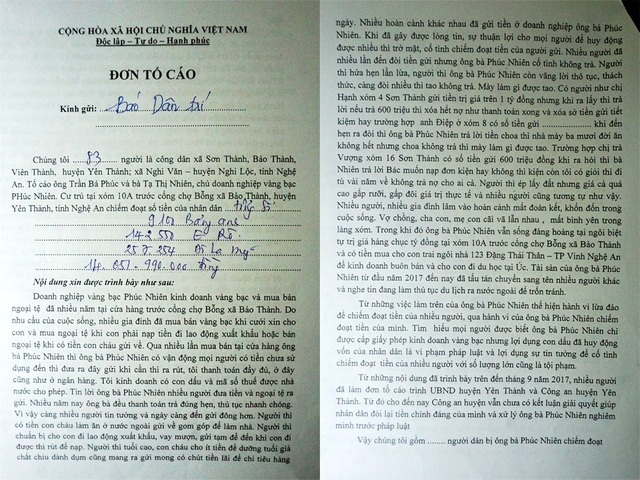 CỘNG HÒA XÃ HỘI CHỦ NGHĨA VIỆT NAM
Độc lập – Tự do – Hạnh phúc
ĐƠN TỐ CÁO
Kính gửi: Báo Dân trí
Chúng tôi .....83..... người là công dân xã Sơn Thành, Bảo Thành,
Viên Thành, huyện Yên Thành; xã Nghi Văn – huyện Nghi Lộc, tỉnh Nghệ
An. Tố cáo ông Trần Bá Phúc và bà Tạ Thị Nhiên, chủ doanh nghiệp vàng bạc
PHúc Nhiên. Cư trú tại xóm 10A trước cổng chợ Bỗng xã Bảo Thành, huyện
Yên Thành, tỉnh Nghệ An chiếm đoạt số tiền của nhân dân
9100 Bảng anh
142 550 E Rô
257 254 Đô La mỹ
14.051.990.000 đồng
Nội dung xin được trình bày như sau:
Doanh nghiệp vàng bạc Phúc Nhiên kinh doanh vàng bạc và mua bán
ngoại tệ đã nhiều năm tại cửa hàng trước cổng chợ Bỗng xã Bảo Thành. Do
nhu cầu của cuộc sống, nhiều gia đình đã mua bán vàng bạc khi cưới xin cho
con và mua ngoại tệ khi con phải nạp tiền đi lao động xuất khẩu hoặc bán
ngoại tệ khi có tiền con cháu gửi về. Qua nhiều lần mua bán tại cửa hàng ông
bà Phúc Nhiên thì ông bà Phúc Nhiên có vận động mọi người có tiền chưa sử
dụng đến thì đưa ra đây gửi khi cần thì ra rút, tôi thanh toán đầy đủ, ở đây
cũng như ở ngân hàng. Tôi kinh doanh có con dấu và mã số thuế được nhà
nước cho phép. Tin lời ông bà Phúc Nhiên nhiều người đưa tiền và ngoại tệ ra
gửi. Nhiều năm nay ông bà đều thanh toán trả đúng hẹn, thủ tục nhanh chóng.
Vì vậy càng nhiều người tin tưởng và ngày càng đến gửi đông hơn. Người thì
có tiền con cháu làm ăn ở nước ngoài gửi về gom góp để làm nhà. Người thì
chuẩn bị cho con đi lao động xuất khẩu, vay mượn, gửi tạm để đến khi con đi
được thì rút để nạp. Người thì tuổi cao, con cháu cho ít tiền để dưỡng tuổi già
chắt chiu dành dụm cũng mang ra gửi mong có chút tiền lãi để chi tiêu hàng
ngày. Nhiều hoàn cảnh khác nhau đã gửi tiền ở doanh nghiệp ông bà Phúc
Nhiên. Khi đã gây được lòng tin, sự thuận lợi cho mọi người để huy động
được nhiều thì trở mặt, cố tình chiếm đoạt tiền của người gửi. Nhiều người đã
nhiều lần đến đòi tiền gửi nhưng ông bà Phúc Nhiên cố tình không trả. Người
thì hứa hẹn lần lữa, người thì ông bà Phúc Nhiên còn văng lời thô tục, thách
thức, càng đòi nhiều thì tao không trả. Mày làm gì được tao. Có người như chị
Hạnh xóm 4 Sơn Thành gửi tiền trị giá trên 1 tỷ đồng nhưng khi ra lấy thì trả
lời nếu trả 600 triệu thì xóa hết nợ như thanh toán xong và xóa sổ tiền gửi tiết
kiệm hay trường hợp anh Điệp ở xóm 8 có số tiền gửi .................... khi đến
hẹn ra đòi thì ông bà Phúc Nhiên trả lời tiền choa thì nhà mày ba mươi đời ăn
không hết nhưng choa không trả thì mày làm gì được tao. Trường hợp chị trả
Vượng xóm 16 Sơn Thành có số tiền gửi 600 triệu đồng khi ra hỏi thì bà
Nhiên trả lời Bác muốn nạp đơn kiện hay không thì kiện còn tôi có giỏi thì đi
tù vài năm về không trả nợ cho ai cả. Người thì ép lấy đất nhưng giá cả quá
cao gấp rưỡi, gấp đôi giá trị thực tế và nhiều người cùng tương tự như vậy.
Nhiều người, nhiều gia đình lâm vào hoàn cảnh mất đoàn kết, khốn đốn trong
cuộc sống. Vợ chồng, cha con, mẹ con cãi vã lẫn nhau , mất bình yên trong
làng xóm. Trong khi đó ông bà Phúc Nhiên vẫn sống đàng hoàng tại ngôi biệt
tự trị giá hàng chục tỷ đồng tại xóm 10A trước cổng chợ Bỗng xã Bảo Thành
và có tiền mua cho con trai ngôi nhà 123 Đặng Thái Thân – TP Vinh Nghệ An
để kinh doanh buôn bán và cho con đi du học tại Úc. Tài sản của ông bà Phúc
Nhiên từ đầu năm 2017 đến nay đã tẩu tán chuyển sang tên nhiều người khác
và nghe tin đang làm thủ tục du lịch ra nước ngoài để trốn tránh.
Từ những việc làm trên của ông bà Phúc Nhiên thể hiện hành vi lừa đảo
để chiếm đoạt tiền của nhiều người, qua hành vi của ông bà Phúc Nhiên chiếm
đoạt tiền của mình. Tìm hiểu mọi người được biết ông bà Phúc Nhiên chỉ
được cấp giấy phép kinh doanh vàng bạc nhưng lợi dụng con dấu đã huy động
vốn của nhân dân là vi phạm pháp luật và lợi dụng sự tin tưởng để cố tình
chiếm đoạt tiền của nhiều người với số lượng lớn cũng là tội phạm.
Từ những nội dung đã trình bày trên đến tháng 9 năm 2017, nhiều người
đã làm đơn tố cáo trình UBND huyện Yên Thành và Công an huyện Yên
Thành. Từ đó cho đến nay Công an huyện vẫn chưa có kết luận giải quyết giúp
nhân dân đòi lại tiền chính đáng của mình và xử lý ông bà Phúc Nhiên nghiêm
minh trước pháp luật
Vậy chúng tôi gồm ........ người dân bị ông bà Phúc Nhiên chiếm đoạt